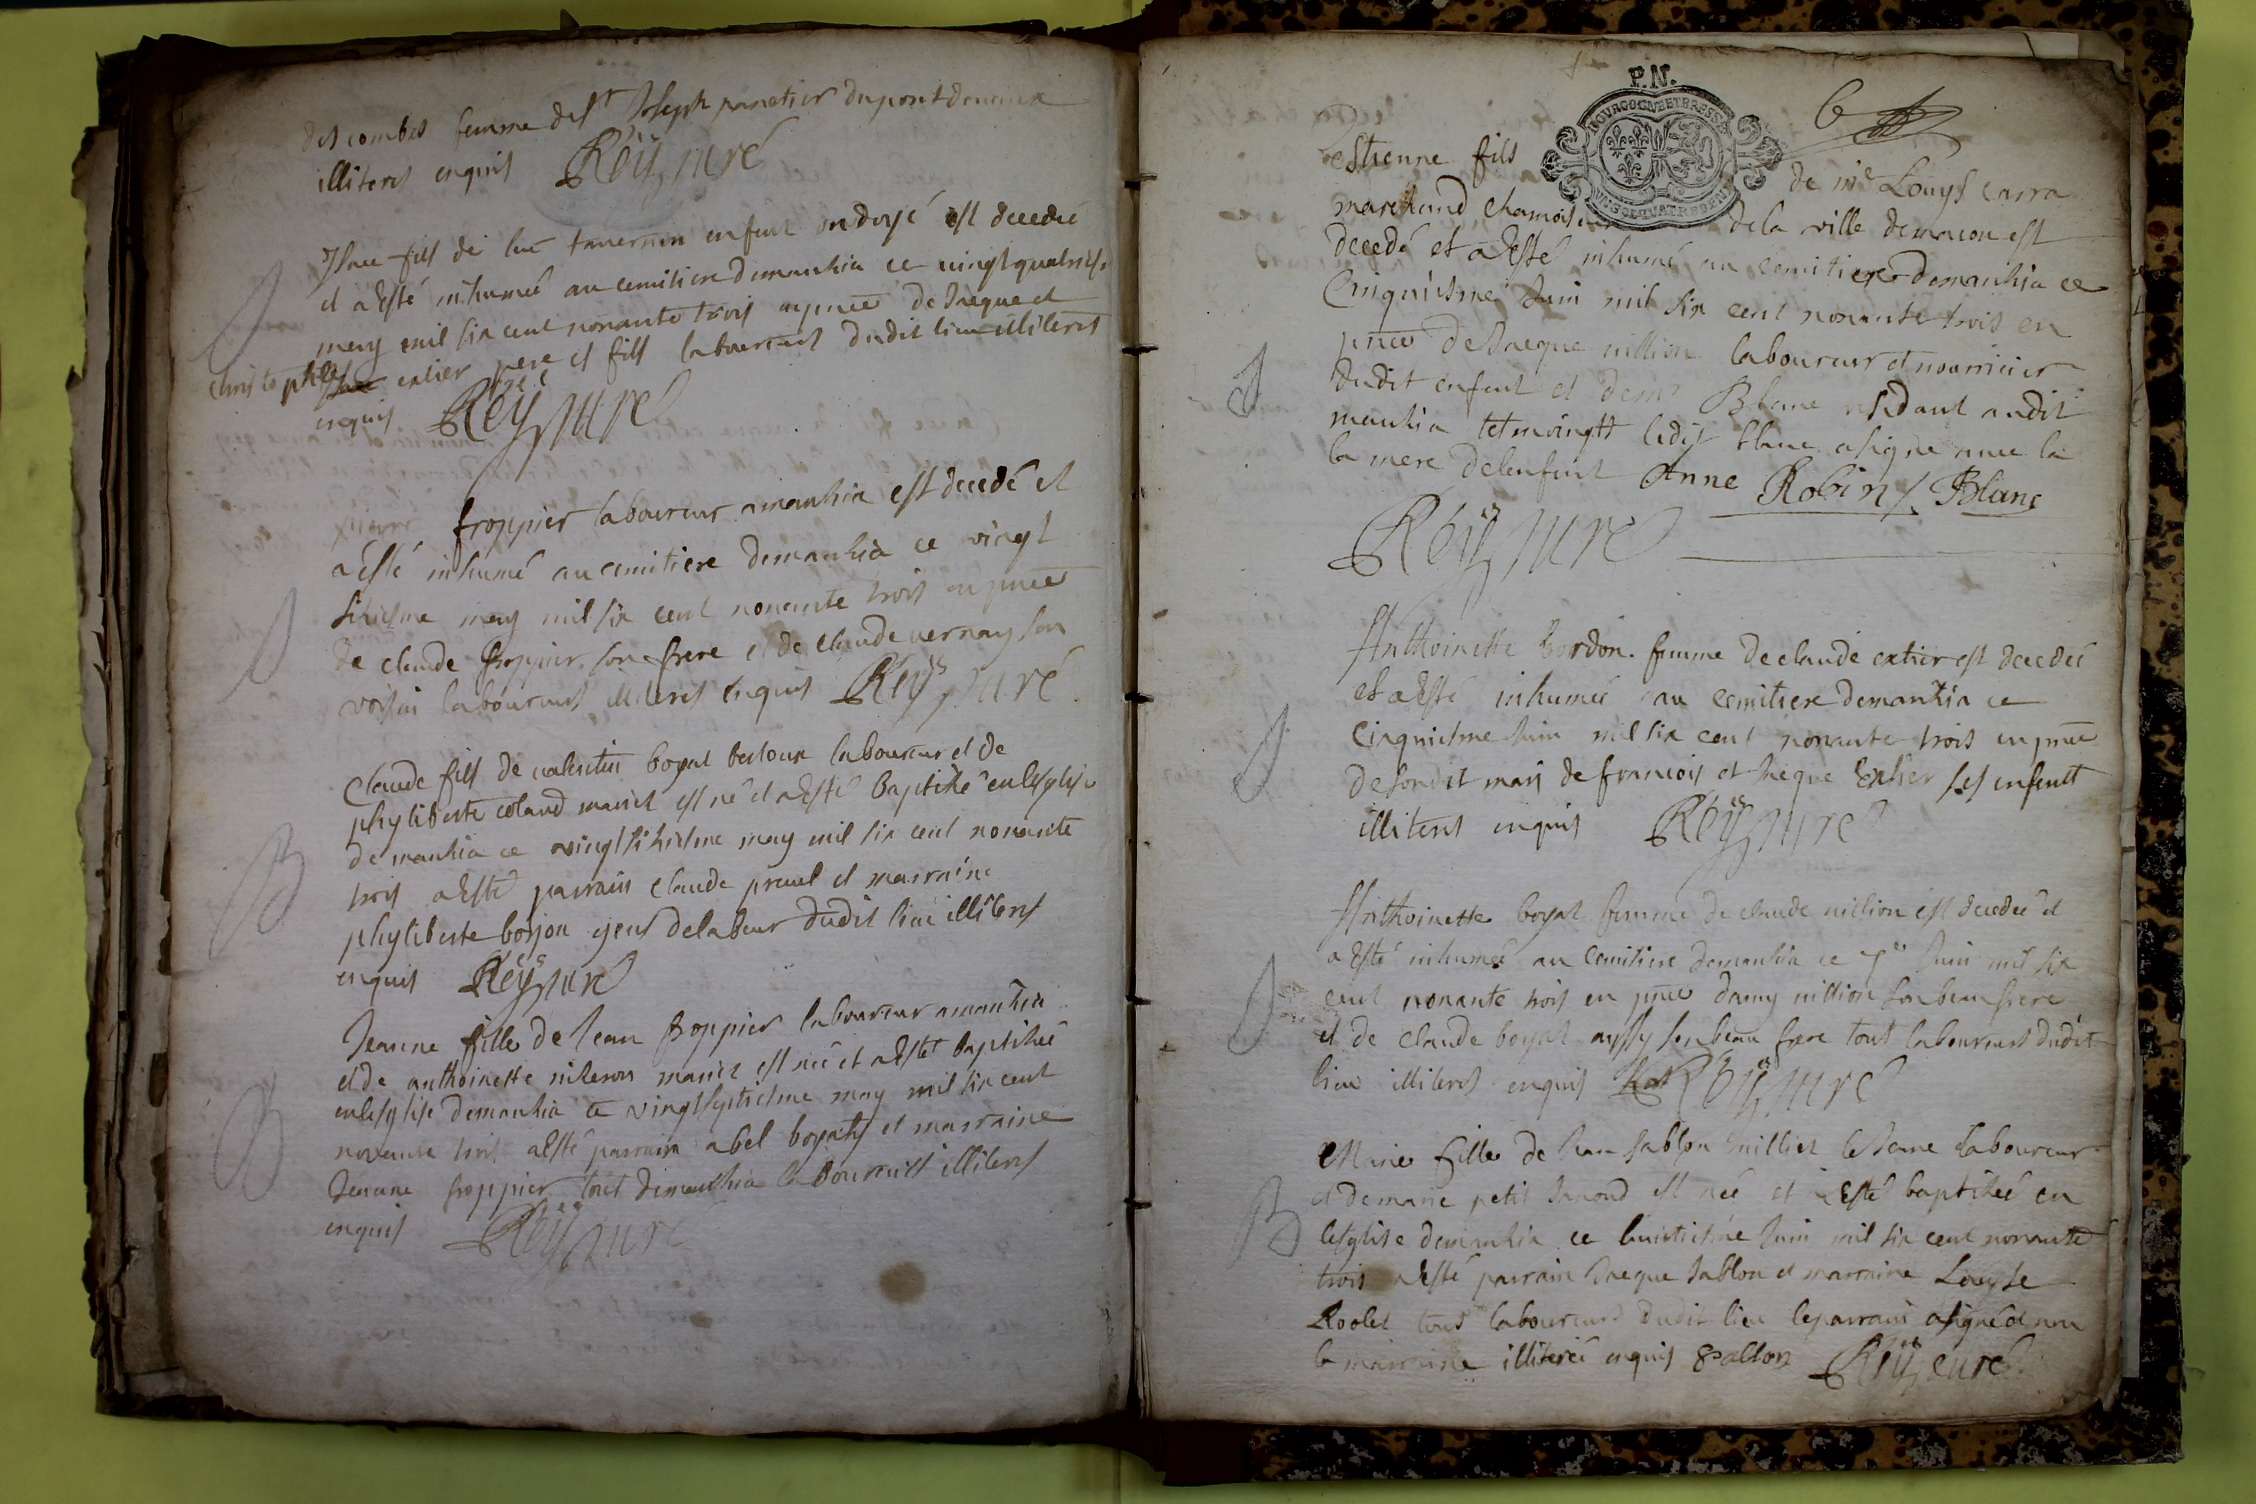 des combes femme de sr Joseph panetier du pont de
illiteres enquis Reÿ curé
fils de luc tavernon enfant ondoyé est decedé
et a esté inhumé au cemitiere de manhia ce vingt quatriesme
may mil six cent nonante trois en pnce de Jaque et
christophle extier pere et fils laboureurs dudit lieu illiteres
enquis Reÿ curé
froppier laboureur a manhia est decedé et
a esté inhumé au cemitiere de manhia ce vingt
sixiesme may mil six cent nonante trois en pnce
de claude froppier son frere et de claude vernay son
voisin laboureurs illiteres enquis Reÿ curé
Claude fils de valentin boyat laboureur et de
phyliberte coland mariez est né et a esté baptisé en lesglise
de manhia ce vingt sixiesme may mil six cent nonante
trois a esté parrain claude et marraine
phyliberte borjon gens de labeur dudit lieu illiteres
enquis Reÿ curé
Jeanne fille de Jean froppier laboureur a manhia
et de anthoinette mariez est née et a esté baptisée
en lesglise de manhia ce vingt septiesme may mil six cent
nonante trois a esté parrain abel boyat et marraine
Jeanne froppier tous de manhia laboureurs illiteres
enquis Reÿ curé
P.N.
BOURGOGNE ET BRESSE
6
Estienne fils de me Louys carra
marchand chamoiseur de la ville de macon est
decedé et a esté inhumé au cemitiere de manhia ce
Cinquiesme Juin mil six cent nonante trois en
pnce de Jaque million laboureur et nourricier
dudit enfent et de mr Blanc residant audit
manhia tesmoingtz ledit blanc a signé avec la
la mere de lenfent Anne Robin / Blanc
Reÿ curé
Anthoinette bordon femme de claude extier est decedée
et a esté inhumée au cemitiere de manhia ce
cinquiesme Juin mil six cent nonante trois en pnce
de sondit mari de francois et Jaque Extier ses enfentz
illiteres enquis Reÿ curé
Anthoinette boyat femme de claude million est decedée et
a esté inhumée au cemitiere de manhia ce 7e Juin mil six
cent nonante trois en pnce damy million son beau frere
et de claude boyat aussy son beau frere tout laboureurs dudit
lieu illiteres enquis Reÿ curé
Marie fille de Jean sablon le Jeune laboureur
et de marie petit est née et a esté baptisée en
lesglise de manhia ce huictiesme Juin mil six cent nonante
trois a esté parrain Jaque sablon et marraine Louyse
Rolet tous laboureurs dudit lieu le parrain a signé et non
la marraine illiterée enquis Sablon Reÿ curé